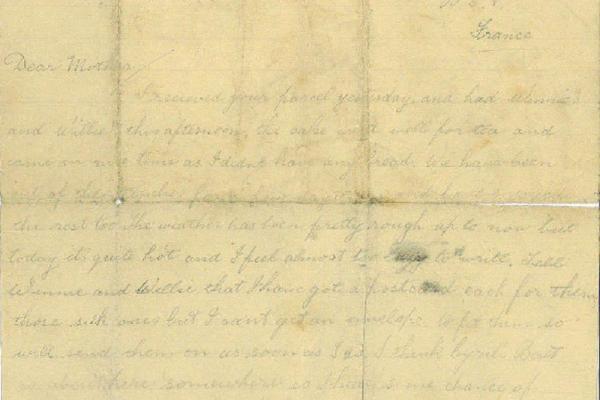 B.E.F.
France
Dear Mother
I received your parcel yesterday, and had Winnie's
and Willie's this afternoon, the cake went well for tea and
came in nice time as I didnt have any bread. We have been
out of the trenches for a few days and have enjoyed
the rest too. The weather has been pretty rough up to now but
today it quite hot and I feel almost too lazy to write. Tell
Winnie and Willie that I have got a postcard each for them
those silk ones but I cant get an envelope to fit them so
will send them on as soon as I do. I think Cyril's Batt
is about here somewhere so I have some chance of